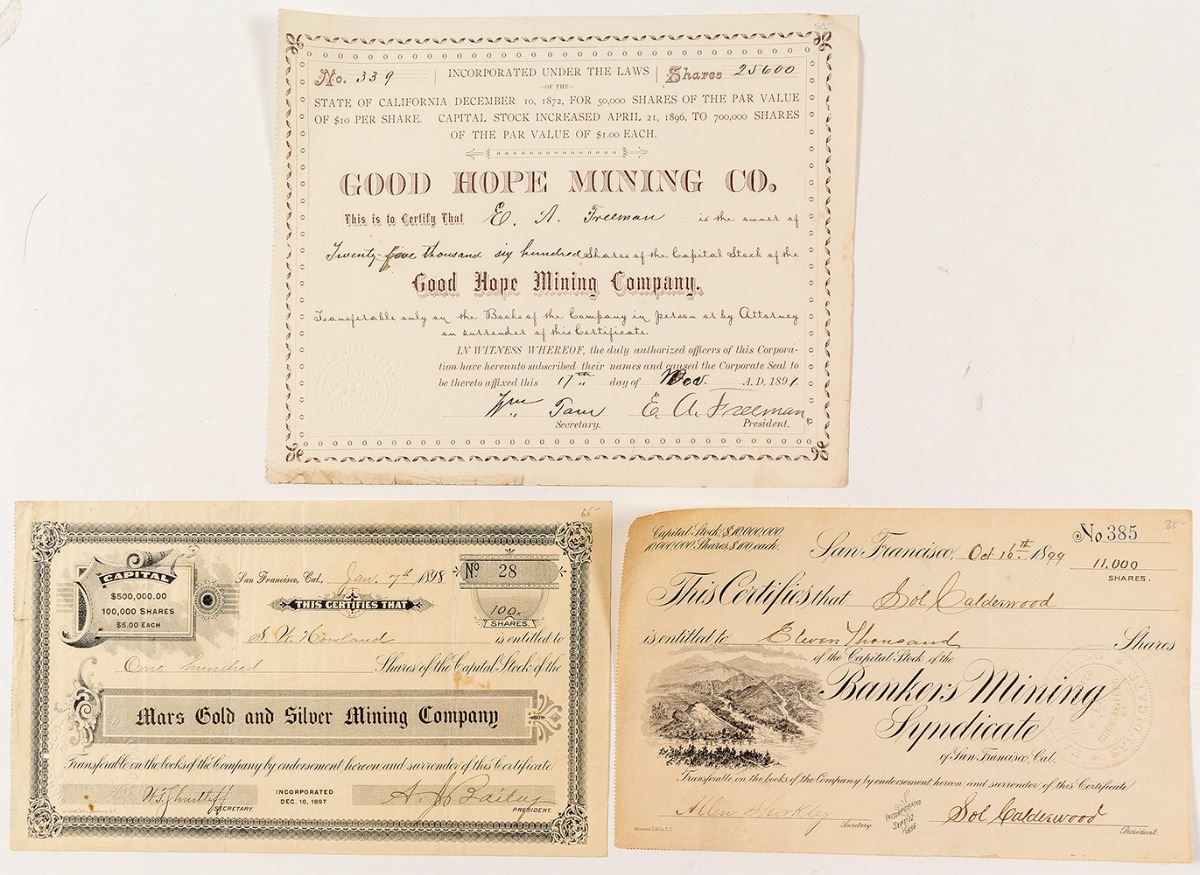 55-
No. 339 INCORPORATED UNDER THE LAWS Shares 25600
-OF THE-
STATE OF CALIFORNIA DECEMBER 10, 1872, FOR 50,000 SHARES OF THE PAR VALUE
OF $10 PER SHARE. CAPITAL STOCK INCREASED APRIL 21, 1896, TO 700,000 SHARES
OF THE PAR VALUE OF $1.00 EACH.
GOOD HOPE MINING CO.
This is to Certify That E. A. Freeman is the owner of
Twenty-five thousand six hundred Shares of the Capital Stock of the
Good Hope Mining Company.
Transferable only on the Books of the Company in person or by Attorney
on surrender of this Certificate.
IN WITNESS WHEREOF, the duly authorized officers of this Corpora-
tion have hereunto subscribed their names and caused the Corporate Seal to
be thereto affixed this 17th day of Nov. A. D. 1897.
Wm E. A. Freeman
Secretary. President.
65-
CAPITAL
$500,000.00
100,000 SHARES
$5.00 EACH
San Francisco, Cal., Jan. 7th 1898 No 28
THIS CERTIFIES THAT
100
SHARES
S. W. Howland is entitled to
One hundred Shares of the Capital Stock of the
Mars Gold and Silver Mining Company
Transferable on the books of the Company by endorsement hereon and surrender of this Certificate.
SECRETARY.
INCORPORATED
DEC. 10, 1897
PRESIDENT.
85-
Capital Stock, $10,000,000.
10,000,000 Shares, $1.00 each.
No 385
San Francisco, Oct 16th 1899
11,000
SHARES.
This Certifies that Sol Calderwood
is entitled to Eleven Thousand Shares
of the Capital Stock of the
Bankers Mining
Syndicate
of San Francisco, Cal.
Transferable on the books of the Company by endorsement hereon and surrender of this Certificate
Allen Secretary.
INCORPORATED
SEPT. 12
1898.
Sol Calderwood
President.